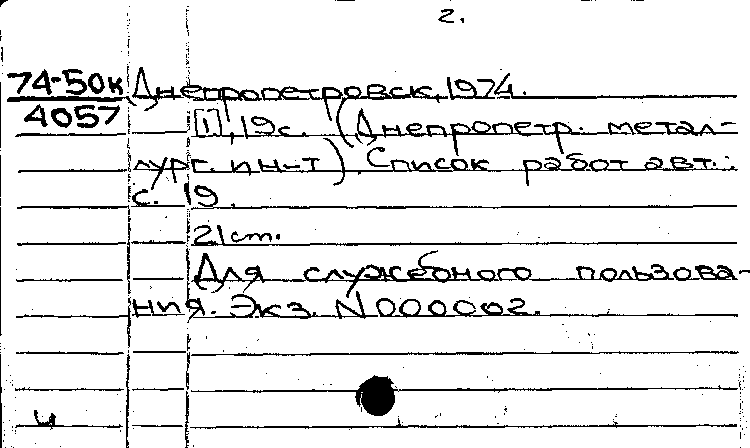 2.
74-50к Днепропетровск, 1974.
4057 [1], 19с. (Днепропетр. метал-
лург. ин-т). Список работ авт.:
с. 19.
21 см.
Для служебного пользова-
ния. Экз. N 000002.
ч